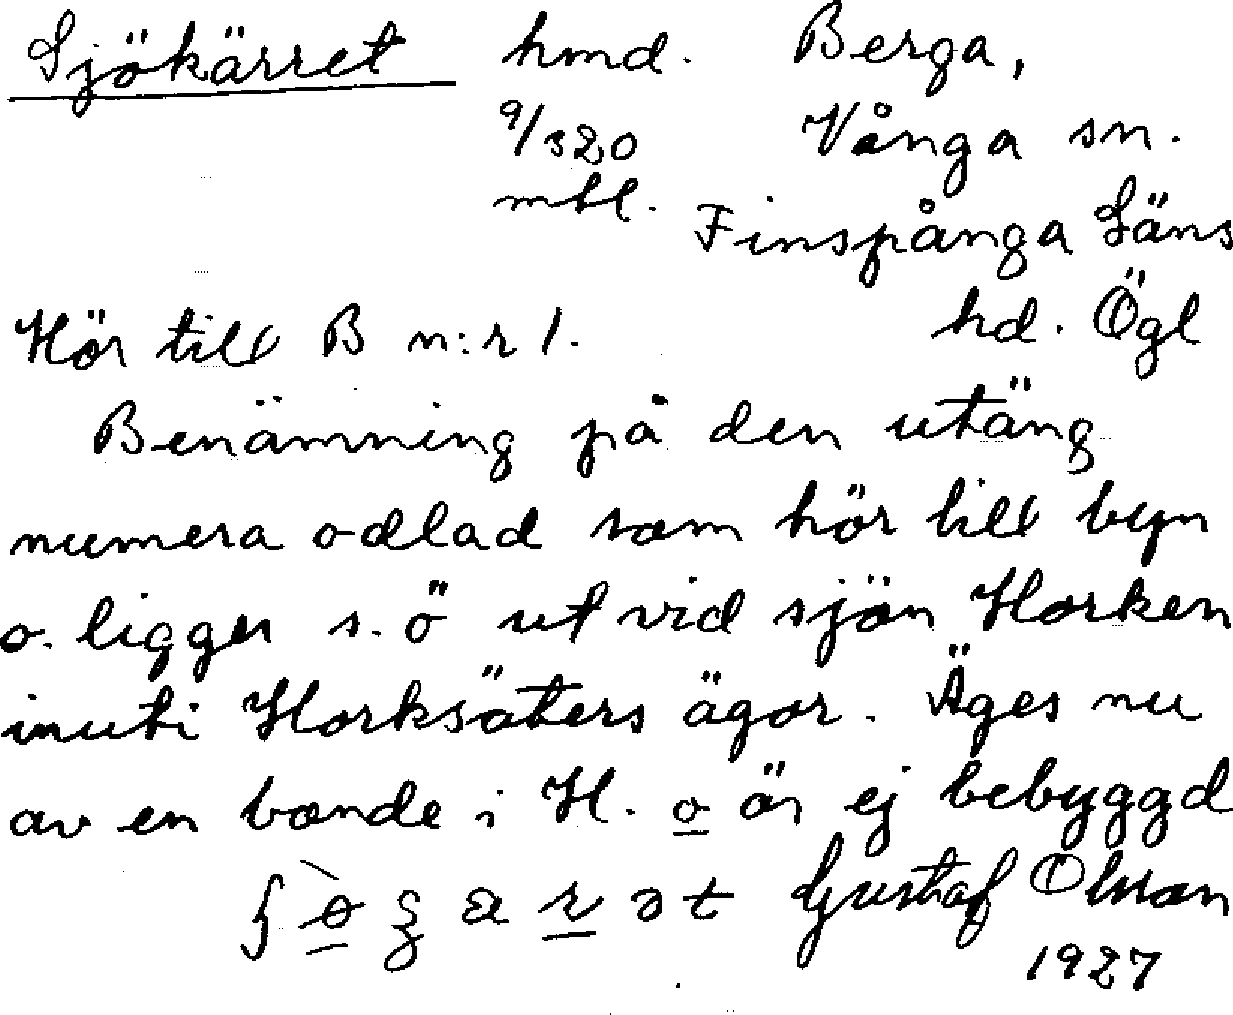 Sjökärret hmd. Berga,
9/320 Vånga sn.
mtl. Finspånga Läns
hd. Ögl
Hör till B n:r 1.
Benämning på den utäng
numera odlad som hör till byn
o. ligger s. ö ut vid sjön Horken
inuti Horksäters ägor. Äges nu
av en bonde i H. o är ej bebyggd
Gustaf Olsson
1927